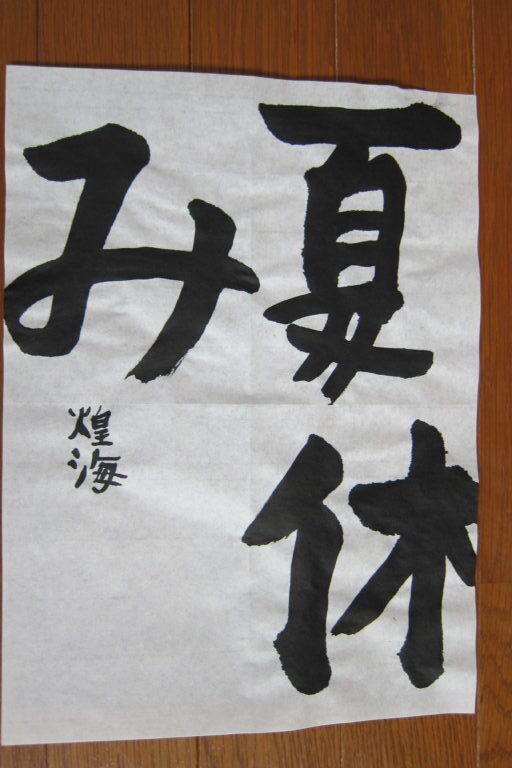 夏休
み
煌海